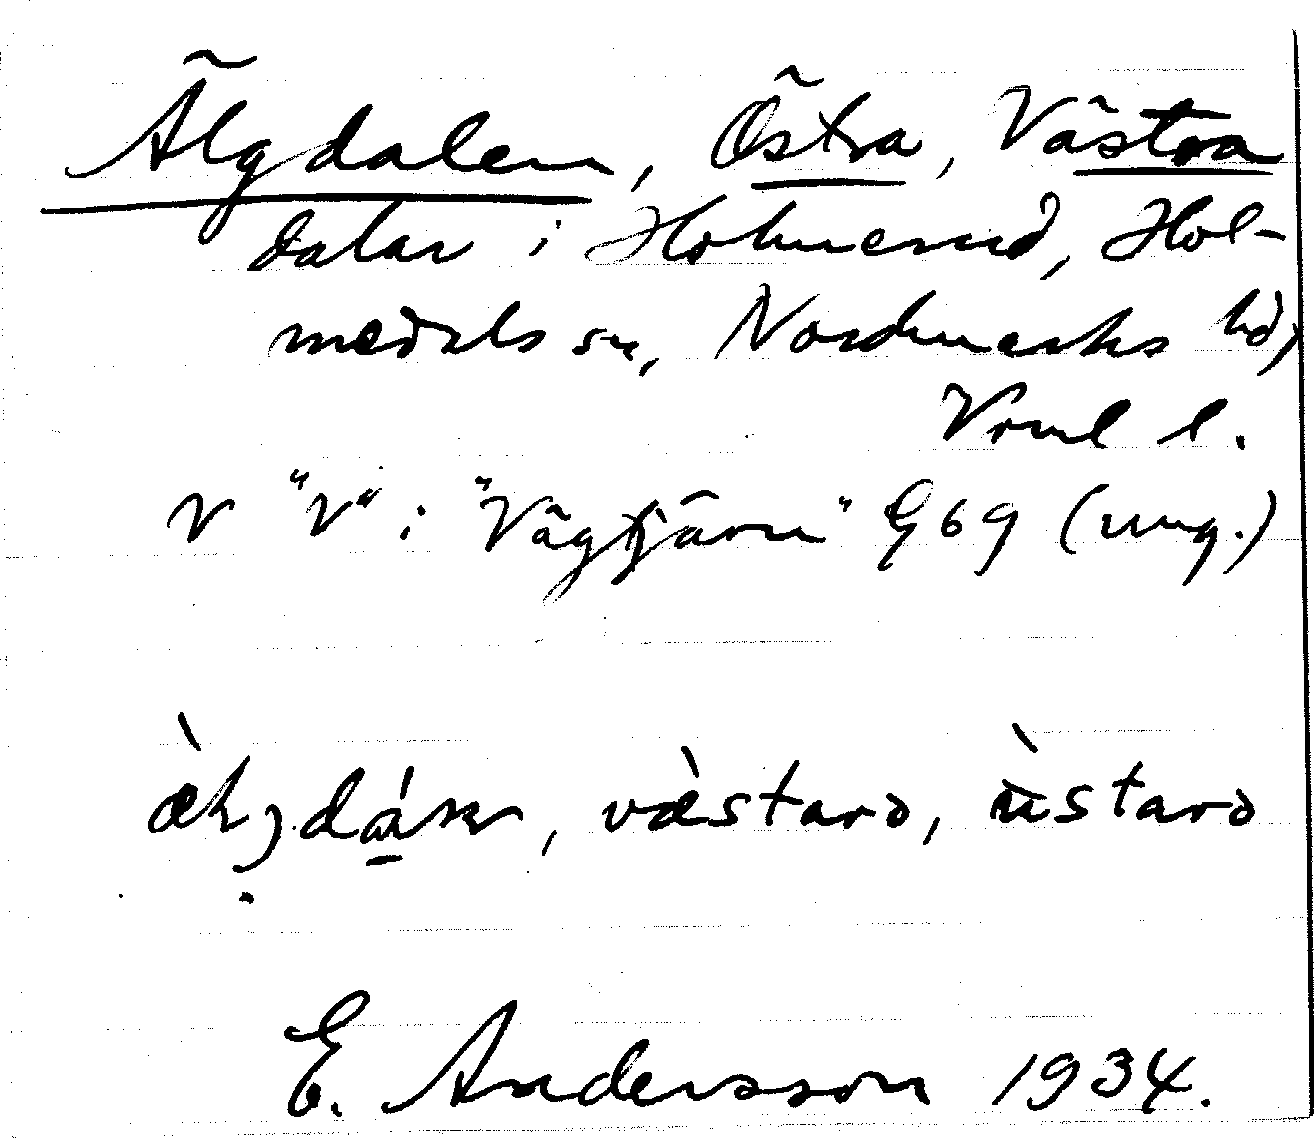 Älgdalen, Östra, Västra
dalar i Holmerud, Hol-
medals sn, Nordmarks hd,
Vrml l.
V "V" i "Vägtjärn" G69 (ung.)
væ̀starə, ùstarə
E. Andersson 1934.